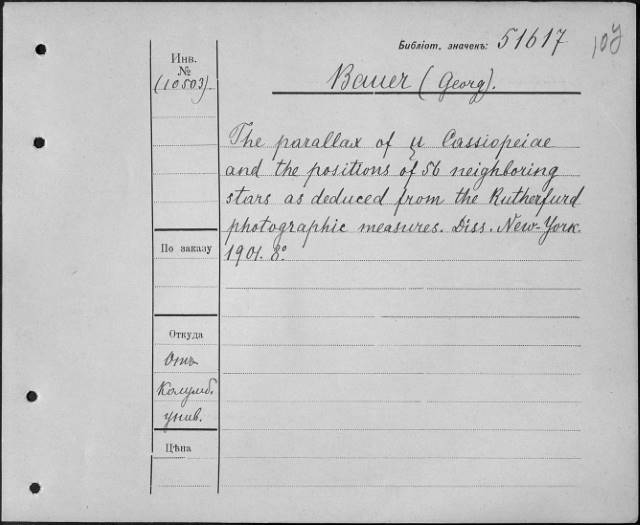 Библіот. значекъ: 51617
Инв.
№
(10503)
Bauer (Georg).
The parallax of μ Cassiopeiae
and the positions of 56 neighboring
stars as deduced from the Rutherfurd
photographic measures. Diss. New-York.
1901. 8°.
По заказу
Откуда
Отъ
Колумб.
унив.
Цѣна